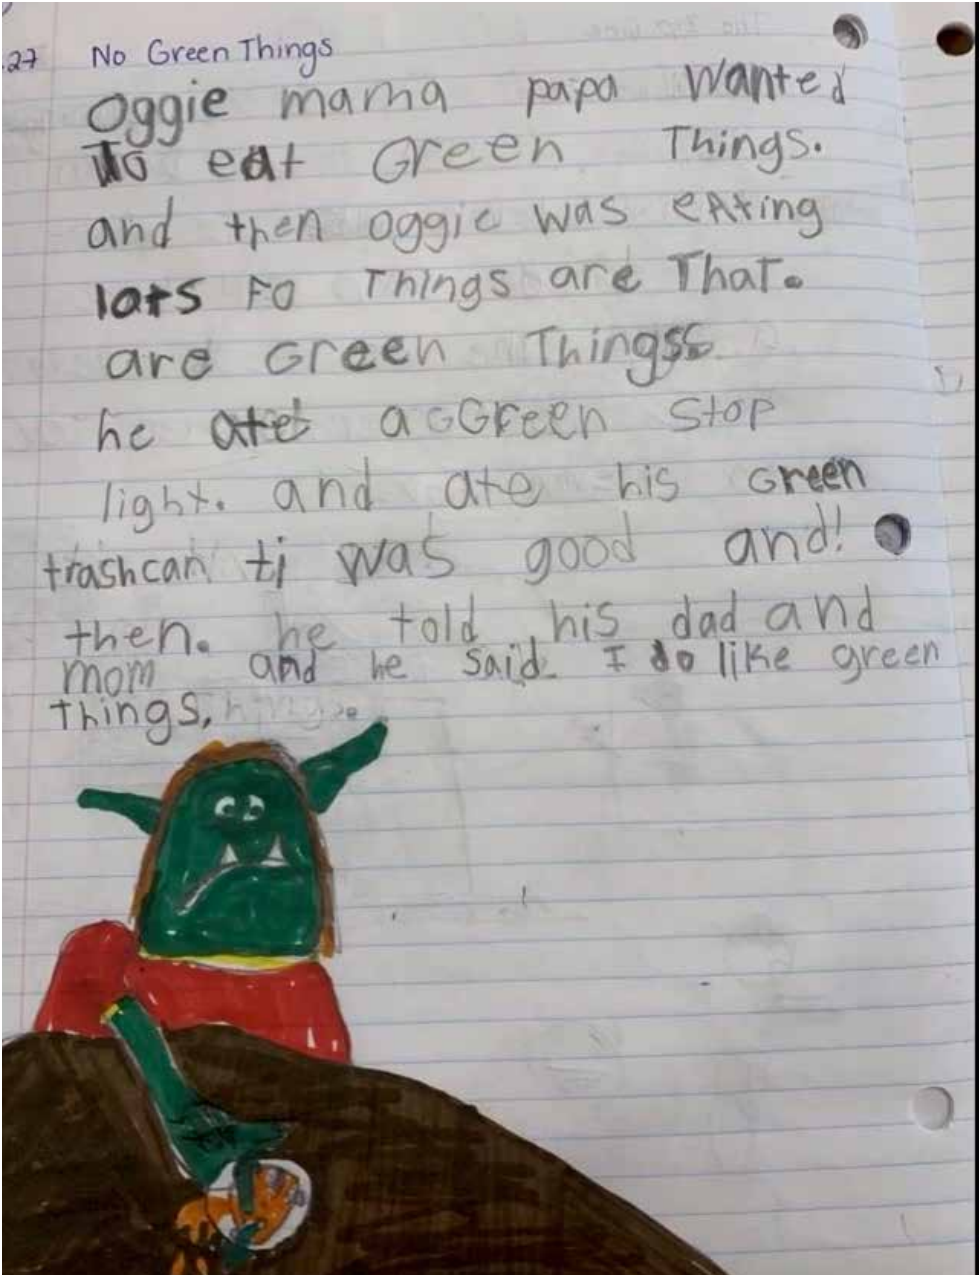 27 No Green Things
Oggie mama papa wanted
To eat Green Things.
and then oggie was eAting
lots Fo Things are That.
are Green Thingss
he ate a GGreen Stop
light. and ate his Green
trashcan ti was good and!
then. he told his dad and
mom and he said I do like green
things,